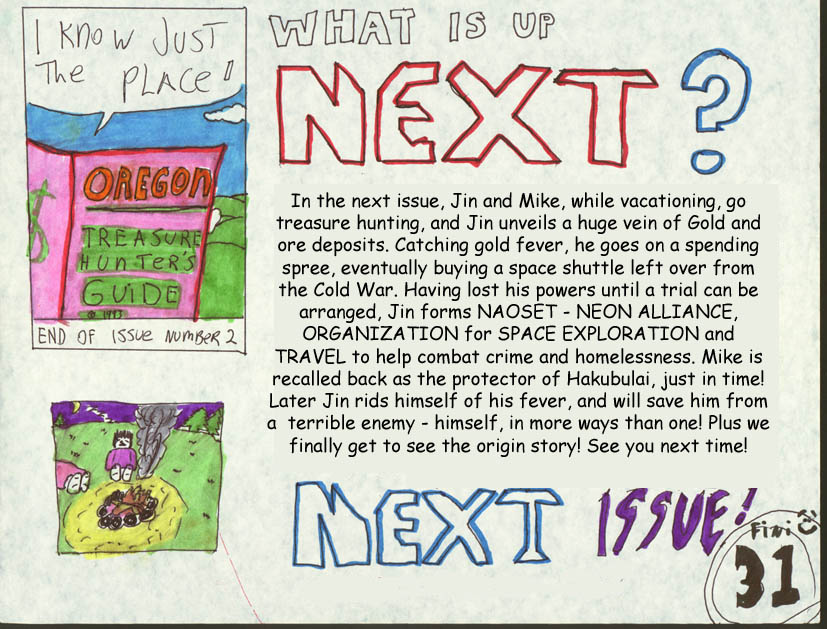 I KNOW JUST
The PLACE!
OREGON
TREASURE
HUNTER'S
GUIDE
© 1993
END OF ISSUE NUMBER 2
WHAT IS UP
NEXT?
In the next issue, Jin and Mike, while vacationing, go
treasure hunting, and Jin unveils a huge vein of Gold and
ore deposits. Catching gold fever, he goes on a spending
spree, eventually buying a space shuttle left over from
the Cold War. Having lost his powers until a trial can be
arranged, Jin forms NAOSET - NEON ALLIANCE,
ORGANIZATION for SPACE EXPLORATION and
TRAVEL to help combat crime and homelessness. Mike is
recalled back as the protector of Hakubulai, just in time!
Later Jin rids himself of his fever, and will save him from
a terrible enemy - himself, in more ways than one! Plus we
finally get to see the origin story! See you next time!
NEXT ISSUE!
Fini
31